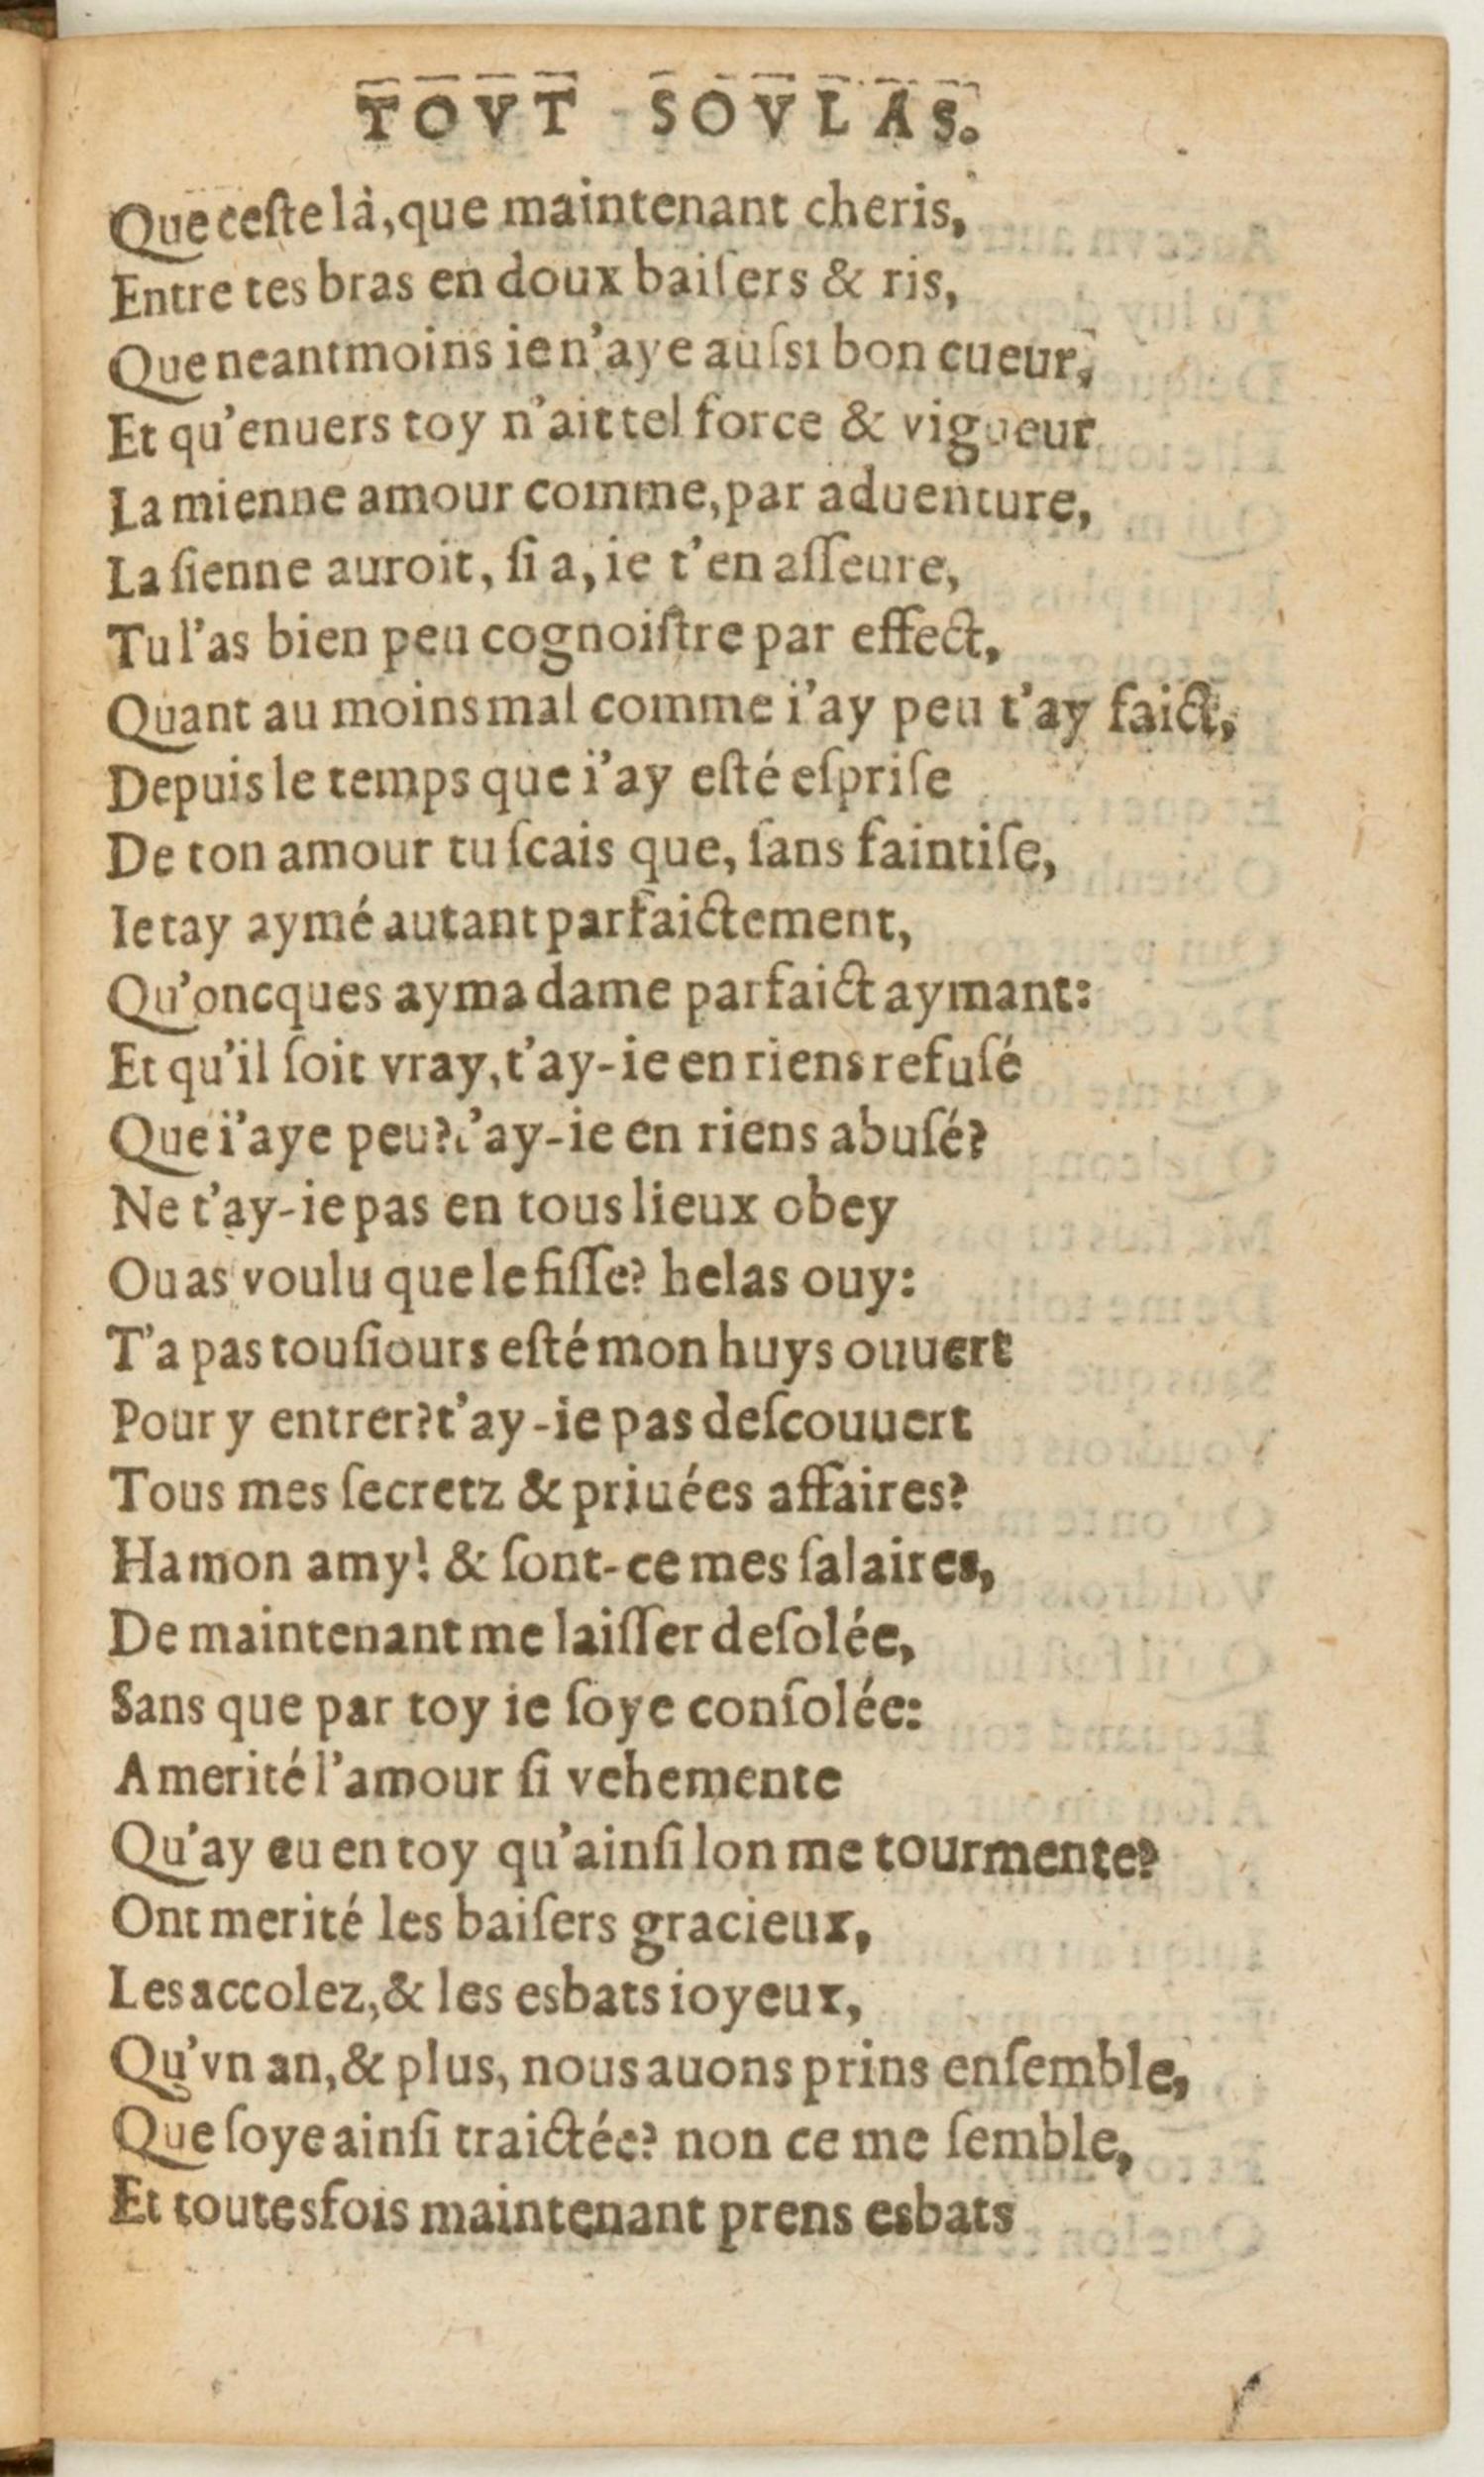 TOVT SOVLAS.
Que ceſte là, que maintenant cheris,
Entre tes bras en doux baiſers & ris,
Que neantmoins ie n'aye auſsi bon cueur,
Et qu'enuers toy n'ait tel force & vigueur
La mienne amour comme, par aduenture,
La ſienne auroit, ſi a, ie t'en aſſeure,
Tu l'as bien peu cognoiſtre par effect,
Quant au moins mal comme i'ay peu t'ay faict,
Depuis le temps que i'ay eſté eſpriſe
De ton amour tu ſcais que, ſans faintiſe,
Ie tay aymé autant parfaictement,
Qu'oncques ayma dame parfaict aymant:
Et qu'il ſoit vray, t'ay-ie en riens refuſé
Que i'aye peu? t'ay-ie en riens abuſé?
Ne t'ay-ie pas en tous lieux obey
Ou as voulu que le fiſſe? helas ouy:
T'a pas touſiours eſté mon huys ouuert
Pour y entrer? t'ay-ie pas deſcouuert
Tous mes ſecretz & priuées affaires?
Ha mon amy! & ſont-ce mes ſalaires,
De maintenant me laiſſer deſolée,
Sans que par toy ie ſoye conſolée:
A merité l'amour ſi vehemente
Qu'ay eu en toy qu'ainſi lon me tourmente?
Ont merité les baiſers gracieux,
Les accolez, & les esbats ioyeux,
Qu'vn an, & plus, nous auons prins enſemble,
Que ſoye ainſi traictée? non ce me ſemble,
Et toutesfois maintenant prens esbats